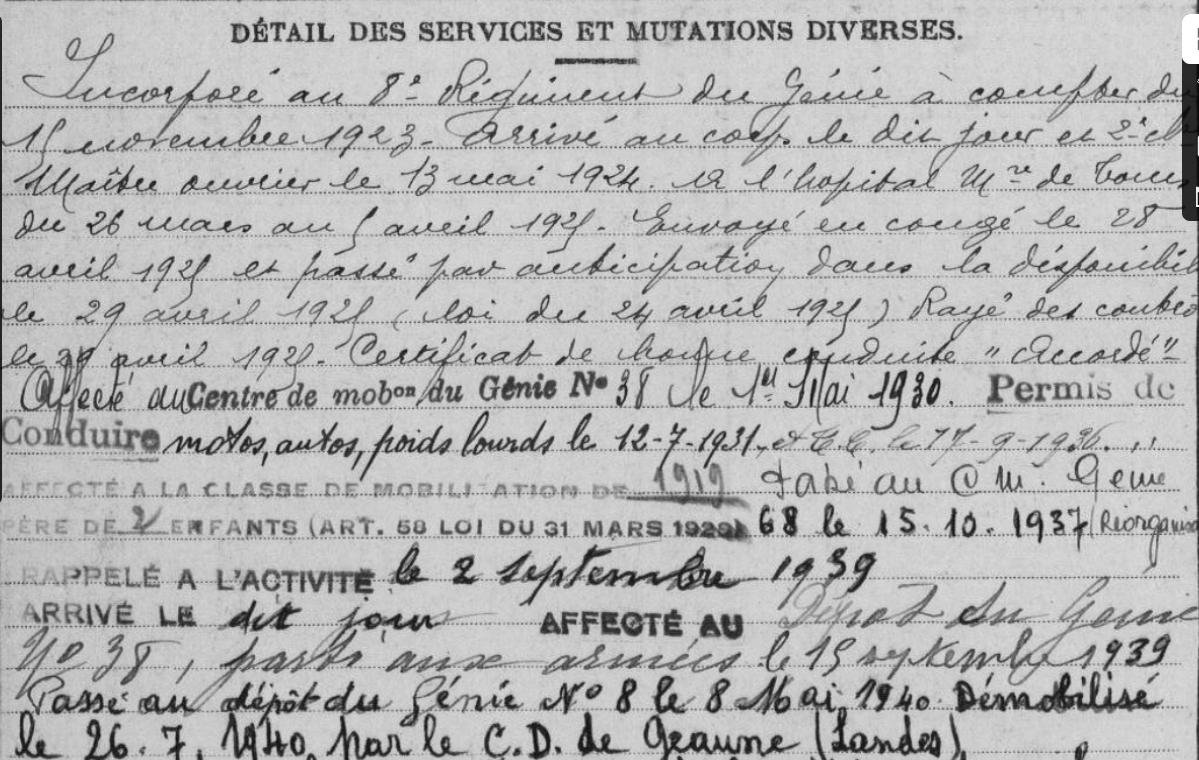 DÉTAIL DES SERVICES ET MUTATIONS DIVERSES.
Incorporé au 8e Régiment du Génie à compter du
15 novembre 1923. Arrivé au corps le dit jour et 2e cl
Maître ouvrier le 13 mai 1924. A l'hopital Mre de Tours
du 26 mars au 5 avril 1925. Envoyé en congé le 28
avril 1925 et passé par anticipation dans la disponibil
le 29 avril 1925 (loi du 24 avril 1925) Rayé des contrôl
le 29 avril 1925. Certificat de bonne conduite "Accordé"
Affecté au Centre de mobon du Génie No 38 le 1er Mai 1930. Permis de
Conduire motos, autos, poids lourds le 12-7-1931, et T.C. le 17-9-1936.
AFFECTÉ A LA CLASSE DE MOBILISATION DE 1919 Passé au C m. Génie
PÈRE DE 2 ENFANTS (ART. 58 LOI DU 31 MARS 1928) 68 le 15.10.1937 (Réorganisa
RAPPELÉ A L'ACTIVITÉ le 2 septembre 1939
ARRIVÉ LE dit jour AFFECTÉ AU Dépot du Genie
No 38, parti aux armées le 15 septembre 1939
Passé au dépôt du Génie No 8 le 8 Mai 1940. Démobilisé
le 26.7.1940 par le C.D. de Geaune (Landes)